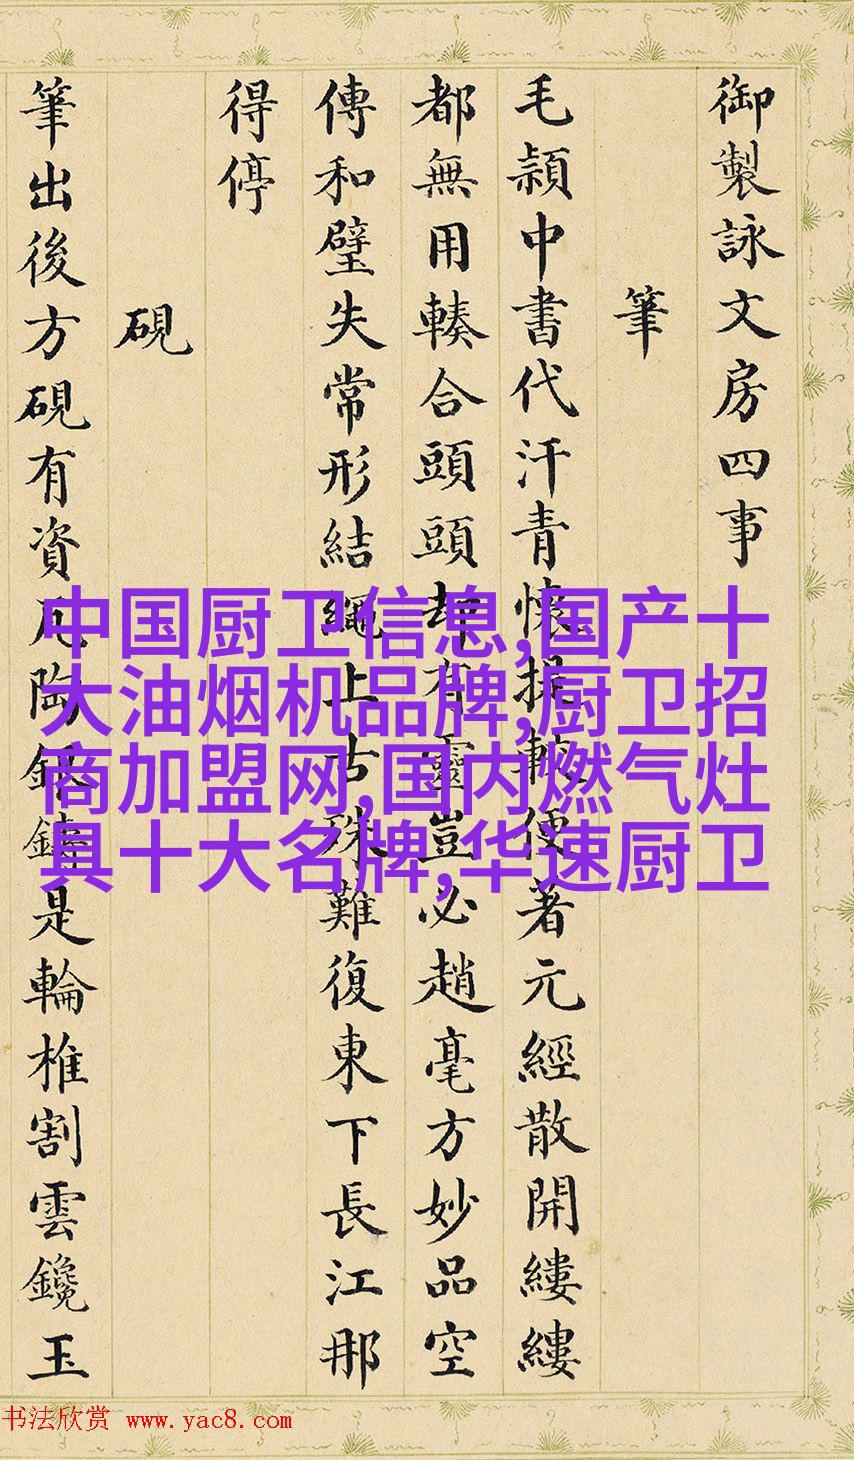 御製詠文房四事
筆
毛穎中書代汗青懷提較便著元經散開縷縷
都無用輳合頭頭却有靈豈必趙毫方妙品空
傳和璧失常形結繩上古殊難復東下長江那
得停
硯
筆出後方硯有資瓦陶銀鑄是輪椎割雲鑱玉
中国厨卫信息,国产十
大油烟机品牌,厨卫招
商加盟网,国内燃气灶
具十大名牌,华速厨卫
书法欣赏 www.yac8.com